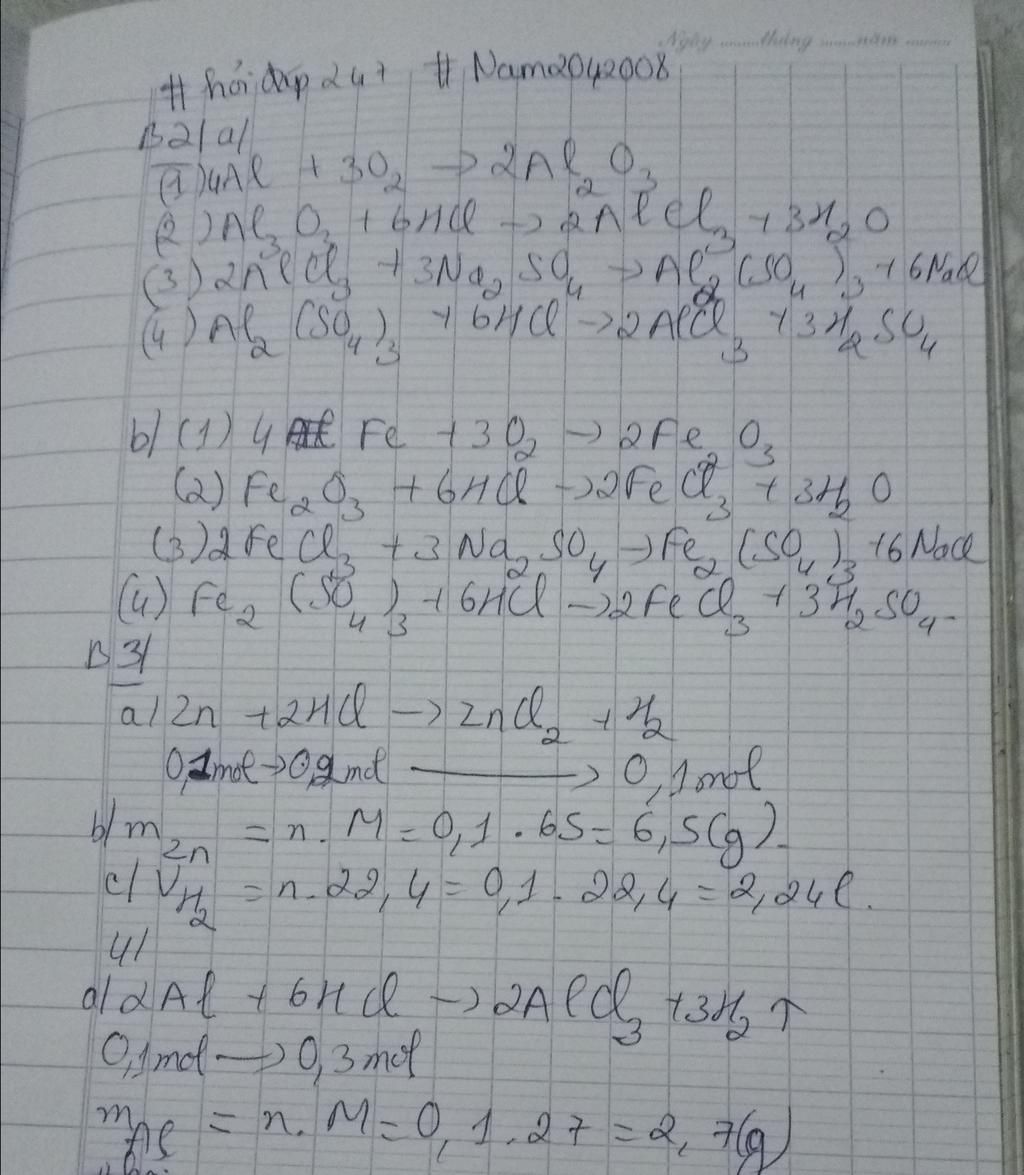 Ngày ........tháng ......năm ........
# hỏi đáp 247 # Nam2042008
B2/a/
(1) 4Al + 3O₂ → 2Al₂O₃
(2) Al₃O₃ + 6HCl → 2AlCl₃ + 3H₂O
(3) 2AlCl₃ + 3Na₂SO₄ → Al₂(SO₄)₃ + 6NaCl
(4) Al₂(SO₄)₃ + 6HCl → 2AlCl₃ + 3H₂SO₄
b/ (1) 4 Fe + 3O₂ → 2Fe₂O₃
(2) Fe₂O₃ + 6HCl → 2FeCl₃ + 3H₂O
(3) 2FeCl₃ + 3Na₂SO₄ → Fe₂(SO₄)₃ + 6NaCl
(4) Fe₂(SO₄)₃ + 6HCl → 2FeCl₃ + 3H₂SO₄.
B3/
a/ Zn + 2HCl → ZnCl₂ + H₂
0,1mol → 0,2mol → 0,1mol
b/ m Zn = n . M = 0,1 . 65 = 6,5(g).
c/ V H₂ = n . 22,4 = 0,1 . 22,4 = 2,24l.
4/
a/ 2Al + 6HCl → 2AlCl₃ + 3H₂ ↑
0,1mol → 0,3mol
m Al = n . M = 0,1 . 27 = 2,7(g)